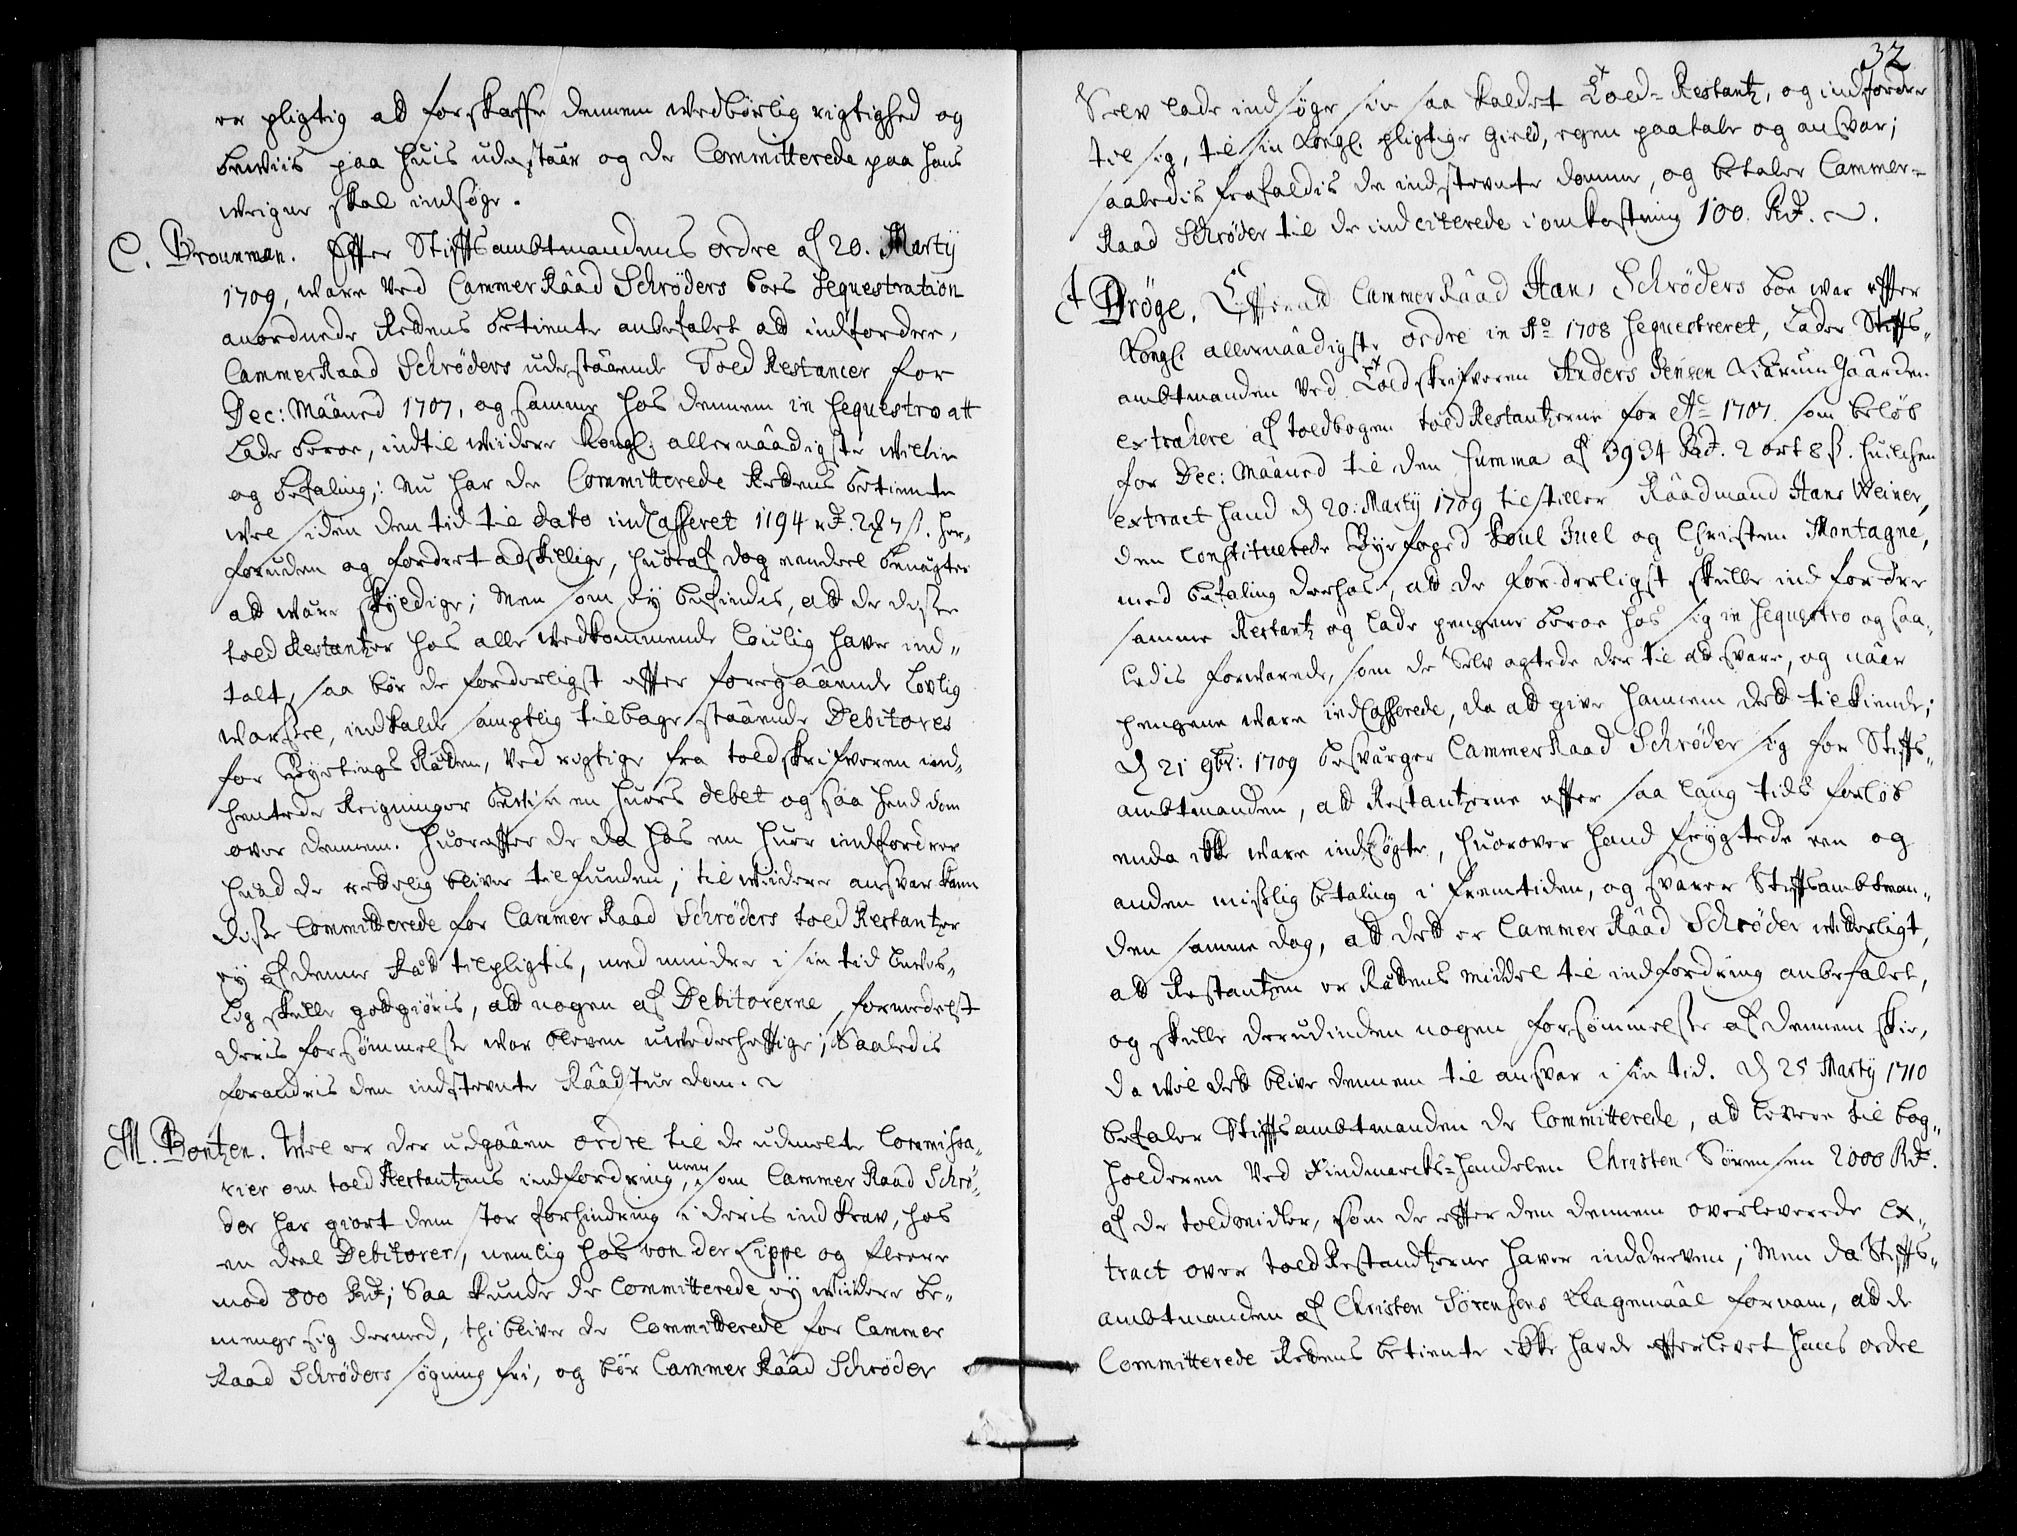 er pligtig att forskaffe dennem wedbørlig rigtighed og
bewiis paa huis udestaar og de Committerede paa hans
weigne skal indsøge.
C. Brounman. Effter Stifftsambtmandens ordre af 20. Martij
1709, ware ved CammerRaad Schrøders boes Sequestration
anordnede Rettens betiente anbefalet att indfordre,
CammerRaad Schrøders udestaaende Toed Restancer for
Dec: Maaned 1707, og samme hos dennem in Sequestro att
lade beroe, indtil widere Kongl: allernaadigste willie
og befaling; Nu har de Committerede Rettens betiente
wel siden den tid til dato indCasseret 1194 rd. 2 7 s. her-
foruden og fordret adskillige, huoraf dog eendeel benægter
att wære skyldige; Men som ej befindes, att de disse
told Restantzer hos alle wedkommende louglig haver ind-
talt, saa bør de forderligst effter foregaaende lovlig
warsel, indkalde samptlig tilbagestaaende Debitores
for Byetings Retten, ved rigtige fra toldskrifveren ind-
hentede Reigninger bevise en huers debet og saa hend dom
over dennem. Huoreffter de da hos en huer indfordrer
huad de rettelig bliver tilfunden; til widere ansvar kan
disse Committerede for CammerRaad Schrøders told Restantzer
ej af denne Rett tilpligtis, med mindre i sin tid bevis-
lig skulle godtgiøris, att nogen af Debitorerne, formedelst
deris forsømmelse war bleven uwederhefftige; Saaledis
forandris den indstevnte Raadstue dom.
M. Bontzen. Wel er der udgaaen ordre til de udmelte Commissa-
rier om told Restantzens indfordring, men som CammerRaad Schrø-
der har giort dem stor forhindring i deris indkrav, hos
en deel Debitorer, nemlig hos von der Lippe og fleere
mod 800 Rd; Saa kunde de Committerede ej widere be-
menge sig dermed, thi bliver de Committerede for Cammer
Raad Schrøders søgning fri, og bør CammerRaad Schrøder
32
Selv lade indsøge sin saa kaldet Toed-Restantz, og indfordre
til sig, til sin Kongl. pligtige Gield, egen paatale og ansvar;
saaledis frafaldis de indstevnte domme, og betaler Cammer-
Raad Schrøder til de indciterede i omkostning 100. Rd.
Drøge. Effterat CammerRaad Hans Schrøders boe war effter
Kongl. allernaadigste ordre in Ao 1708 Sequestreret, Lader Stiffts-
ambtmanden ved Toldskrifveren Anders Jensen Kiærumgaarden
extrahere af toldbogen toldRestantzerne for Ao 1707. som beløb
for Dec: Maaned til den Summa af 3934 Rd. 2 ort 8 s. huilchen
extract hand d 20: Martij 1709 tilstiller Raadmand Hans Weiner,
den Constituerede Byefoged Poul Juel og Christen Montagne,
med befaling derhos, att de forderligst skulle indfordre
samme Restantz og lade pengene beroe hos sig in Sequestro og saa-
ledis forwarede, som de Selv agtede der til att svare, og naar
pengene ware indCasserede, da att give hannem dett tilkiende;
d 21 9br: 1709 besværger CammerRaad Schrøder sig for Stiffts-
ambtmanden, att Restantzerne effter saa lang tids forløb
enda ikke ware indsøgte, huorover hand frygtede een og
anden mißlig betaling i fremtiden, og svarer Stifftsambtman-
den samme dag, att dett er CammerRaad Schrøder witterligt,
att Restantzen er Rettens middel til indfordring anbefalet,
og skulle derudinden nogen forsømmelse af dennem skie,
da wil dett blive dennem til ansvar i sin tid. d 25 Martij 1710
befaler Stifftsambtmanden de Committerede, att levere til bog-
holderen ved Findmarcks-handelen Christen Sørensen 2000 Rd.
af de toldmidler, som de effter den dennem overleverede Ex-
tract over toldRestandtzerne haver inddreven; Men da Stiffts-
ambtmanden af Christen Sørensens Klagemaal fornam, att de
Committerede Rettens betiente ikke hafde effterlevet hans ordre